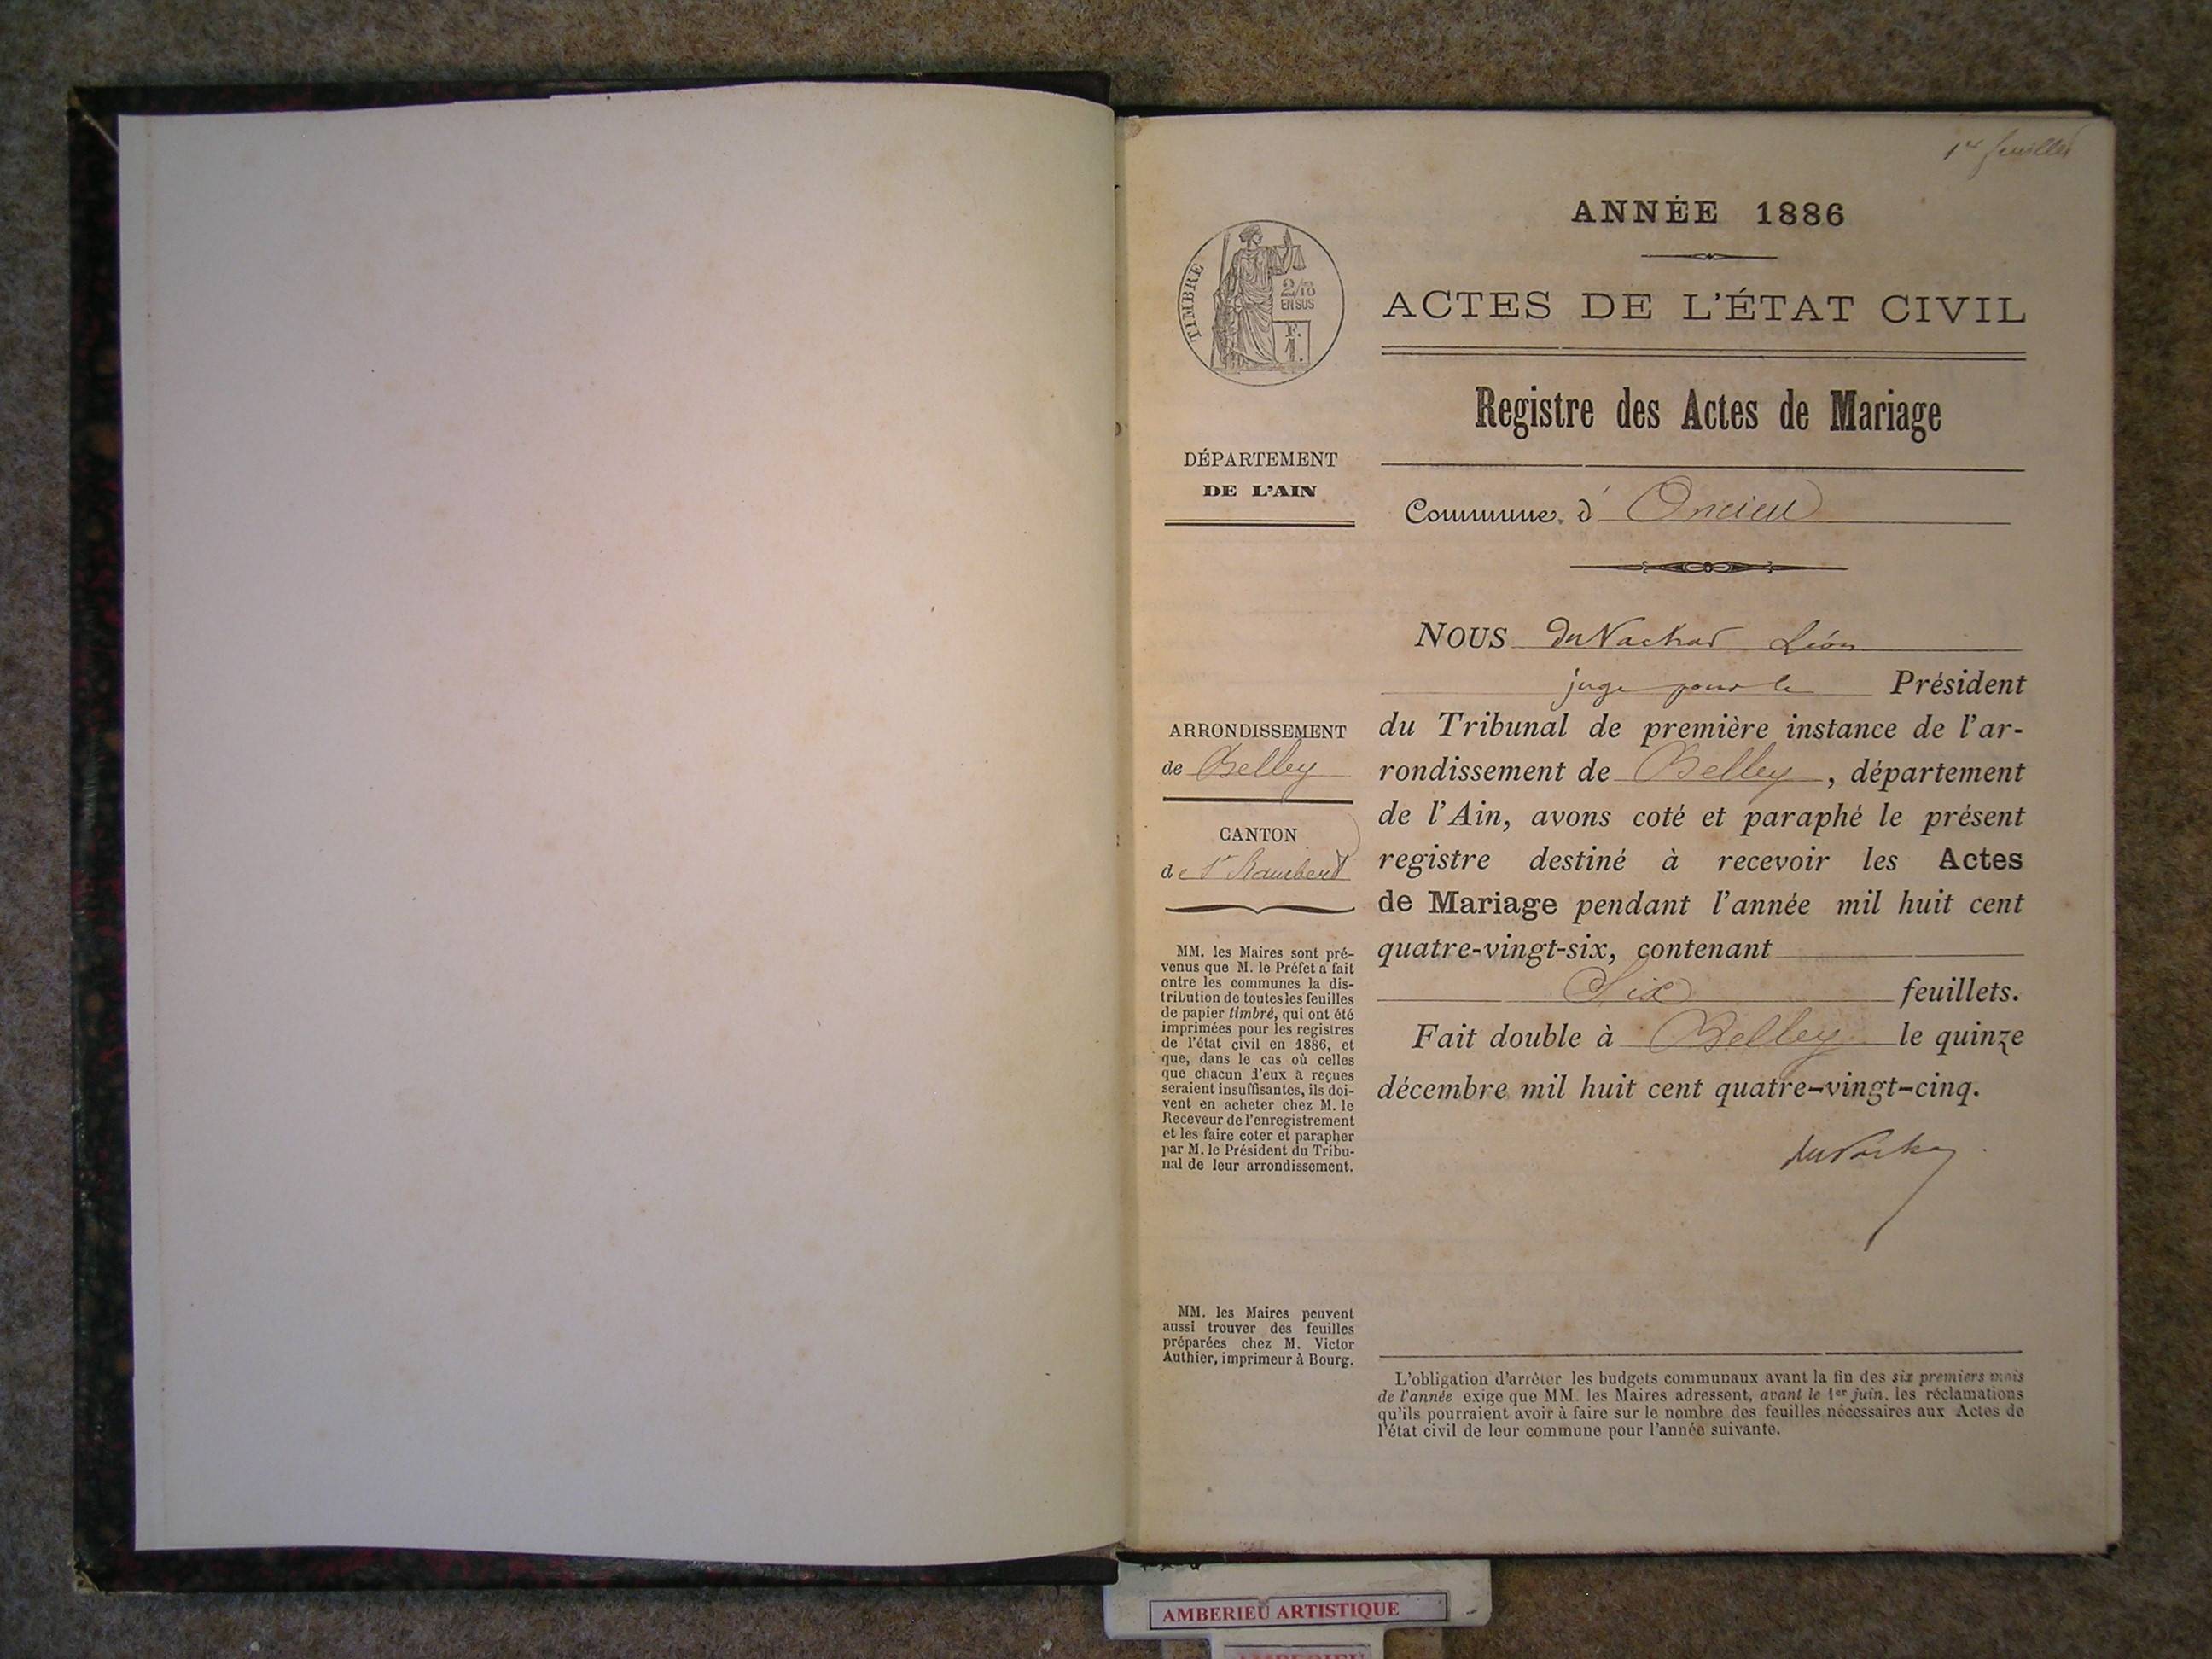 1er feuillet
ANNÉE 1886
TIMBRE
2/10
EN SUS
F.
1.
ACTES DE L'ÉTAT CIVIL
Registre des Actes de Mariage
DÉPARTEMENT
DE L'AIN
Commune d' Oncieu
NOUS Léon
juge pour le Président
du Tribunal de première instance de l'ar-
rondissement de Belley, département
de l'Ain, avons coté et paraphé le présent
registre destiné à recevoir les Actes
de Mariage pendant l'année mil huit cent
quatre-vingt-six, contenant
Six feuillets.
Fait double à Belley le quinze
décembre mil huit cent quatre-vingt-cinq.
ARRONDISSEMENT
de Belley
CANTON
de St Rambert
MM. les Maires sont pré-
venus que M. le Préfet a fait
entre les communes la dis-
tribution de toutes les feuilles
de papier timbré, qui ont été
imprimées pour les registres
de l'état civil en 1886, et
que, dans le cas où celles
que chacun d'eux a reçues
seraient insuffisantes, ils doi-
vent en acheter chez M. le
Receveur de l'enregistrement
et les faire coter et parapher
par M. le Président du Tribu-
nal de leur arrondissement.
MM. les Maires peuvent
aussi trouver des feuilles
préparées chez M. Victor
Authier, imprimeur à Bourg.
L'obligation d'arrêter les budgets communaux avant la fin des six premiers mois
de l'année exige que MM. les Maires adressent, avant le 1er juin, les réclamations
qu'ils pourraient avoir à faire sur le nombre des feuilles nécessaires aux Actes de
l'état civil de leur commune pour l'année suivante.
AMBERIEU ARTISTIQUE
AMBERIEU